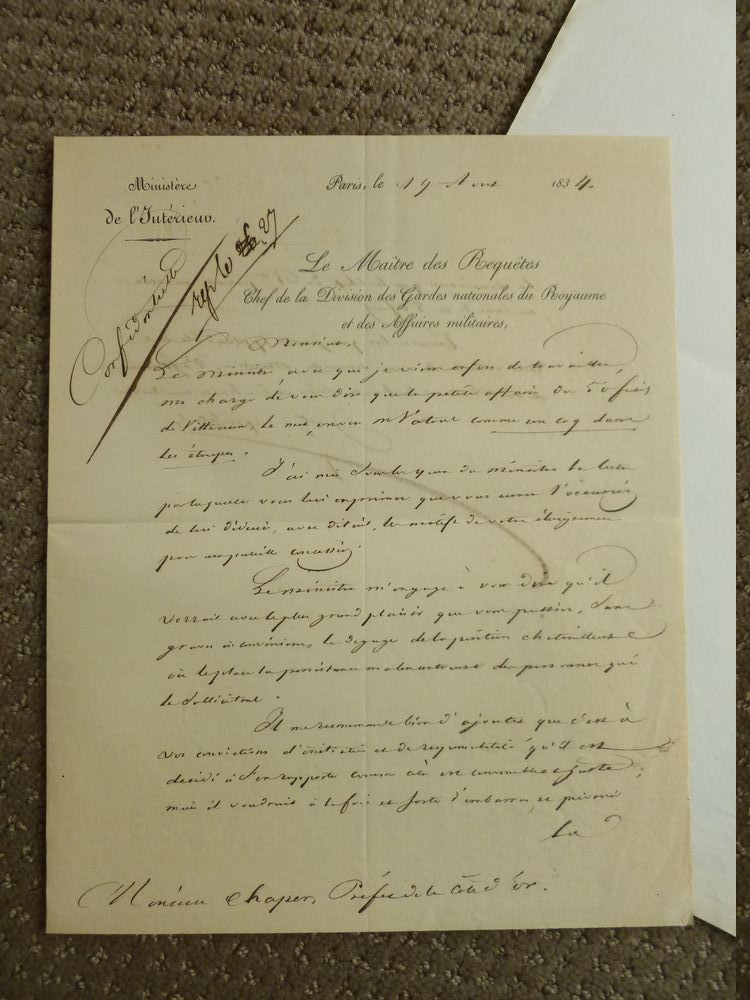 Ministère
de l'Intérieur.
Paris, le 19 Aout 1834.
Confidentielle
rep le 27
Le Maître des Requêtes
Chef de la Division des Gardes nationales du Royaume
et des Affaires militaires,
Monsieur,
Le ministre, avec qui je viens enfin de travailler,
me charge de vous dire que la petite affaire des 50 fusils
de Vitteaux, le met, envers M Vatout comme un coq dans
les étoupes.
J'ai mis sous les yeux du ministre la lettre
par laquelle vous lui exprimez que vous auriez l'occasion
de lui déduire, avec détail, les motifs de votre éloignement
pour une pareille concession.
Le ministre m'engage à vous dire qu'il
verrait avec le plus grand plaisir que vous pussiez, sans
graves inconvéniens, le dégager de la position chatouilleuse
où le place la persistance malencontreuse des personnes qui
le sollicitent.
Il me recommande bien d'ajouter que c'est à
vos convictions d'institution et de responsabilité qu'il est
décidé à s'en rapporter comme cela est convenable et juste;
mais il voudrait à la fois et sortir d'embarras, et prévenir
la
Monsieur Chaper, Préfet de la Côte d'or.